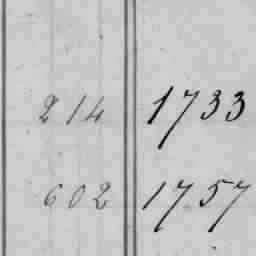 214 1733
602 1757